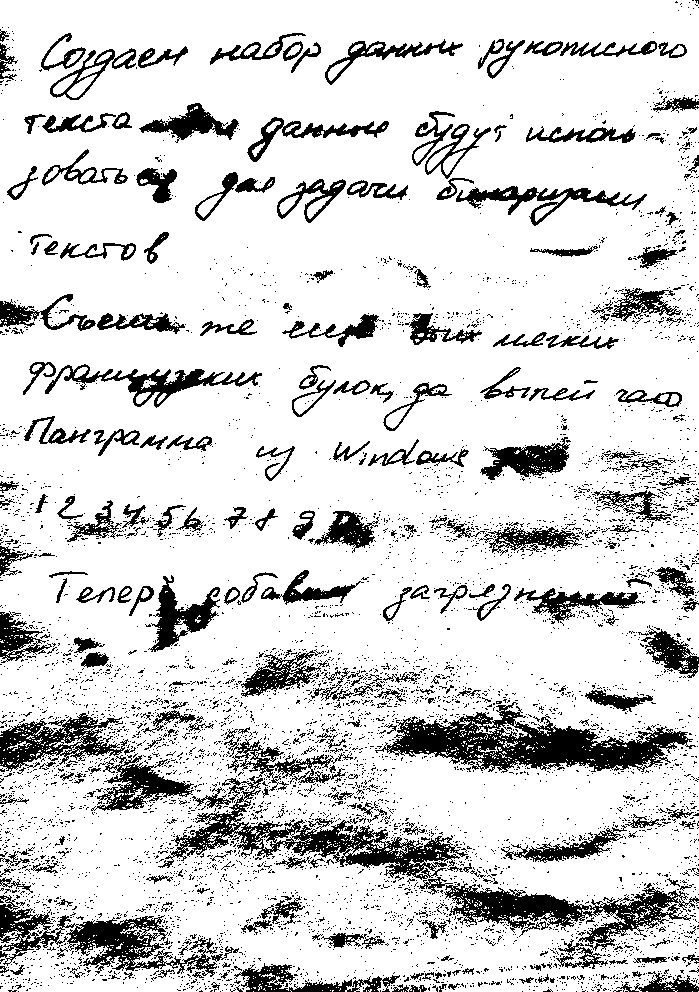 Создаем набор данных рукописного
текста данные будут исполь-
зоваться для задачи бинаризации
текстов
Съешь же ещё этих мягких
французских булок, да выпей чаю
Панграмма из Windows
1 2 3 4 5 6 7 8 9 0
Теперь добавим загрязнений